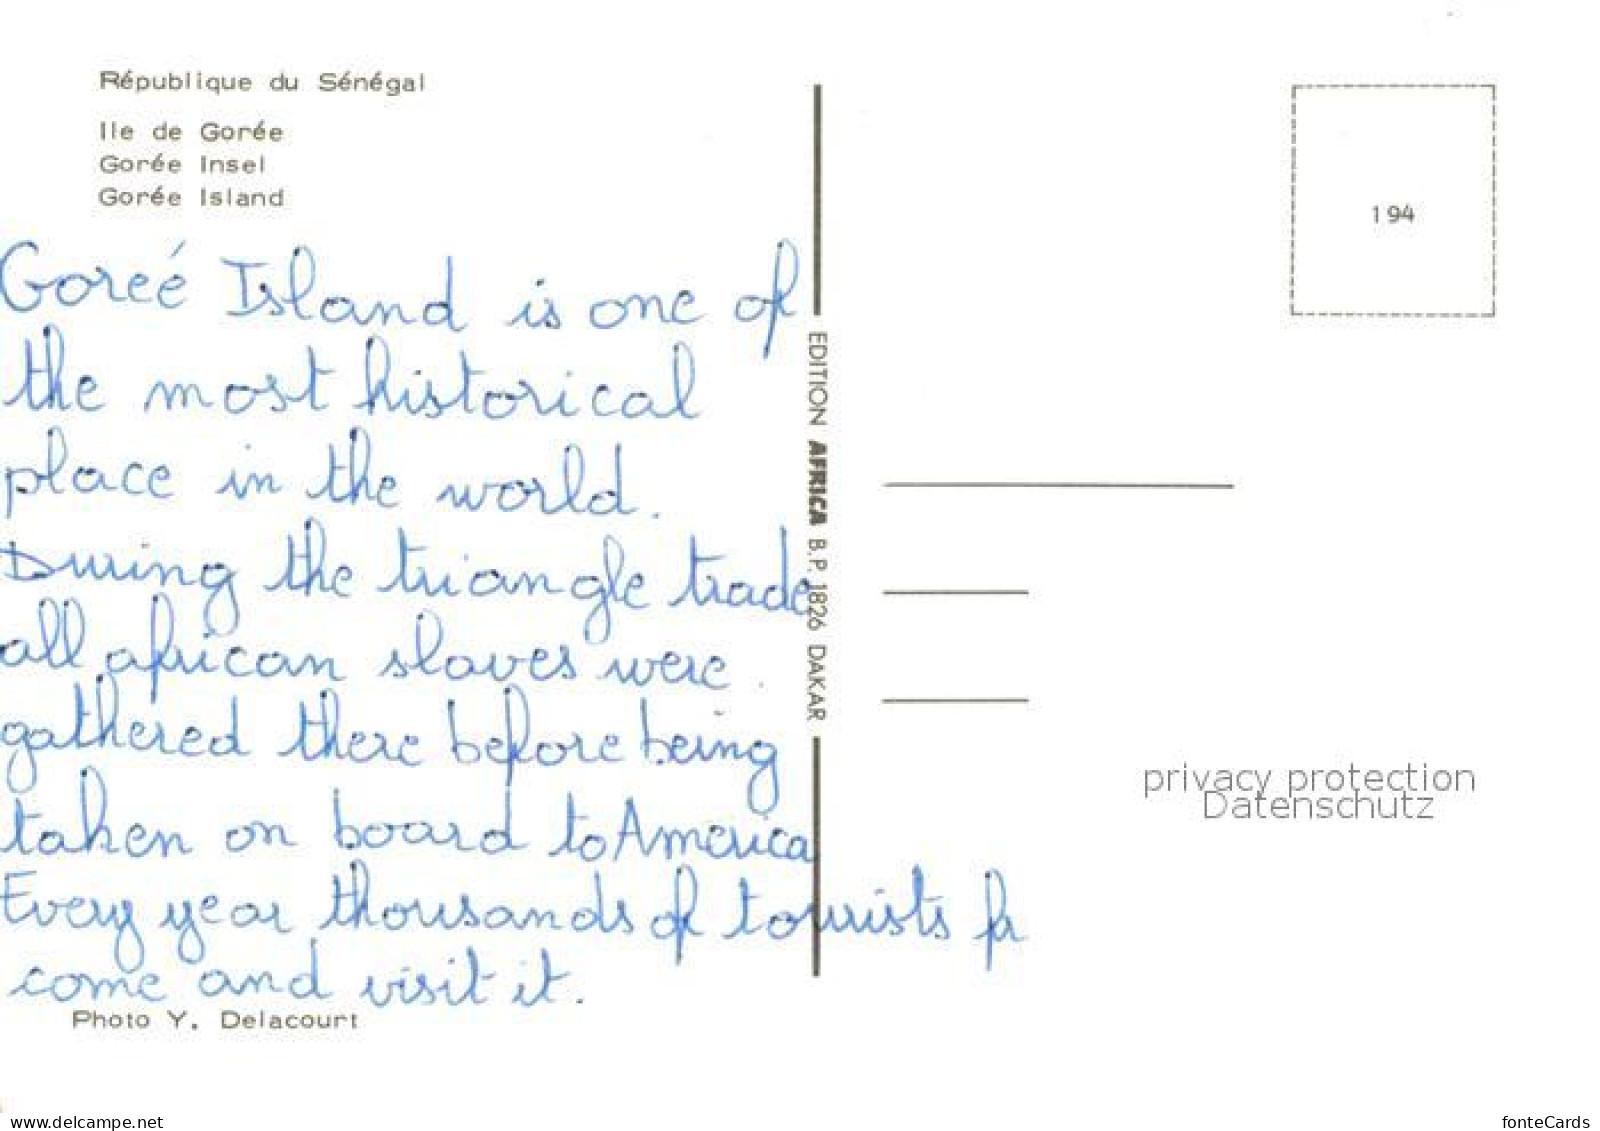 République du Sénégal
Ile de Gorée
Gorée Insel
Gorée Island
Goreé Island is one of
the most historical
place in the world.
During the triangle trade
all african slaves were
gathered there before being
taken on board to America
Every year thousands of tourists
come and visit it.
Photo Y. Delacourt
EDITION AFRICA B.P. 1826 DAKAR
194
privacy protection
Datenschutz
www.delcampe.net
fonteCards